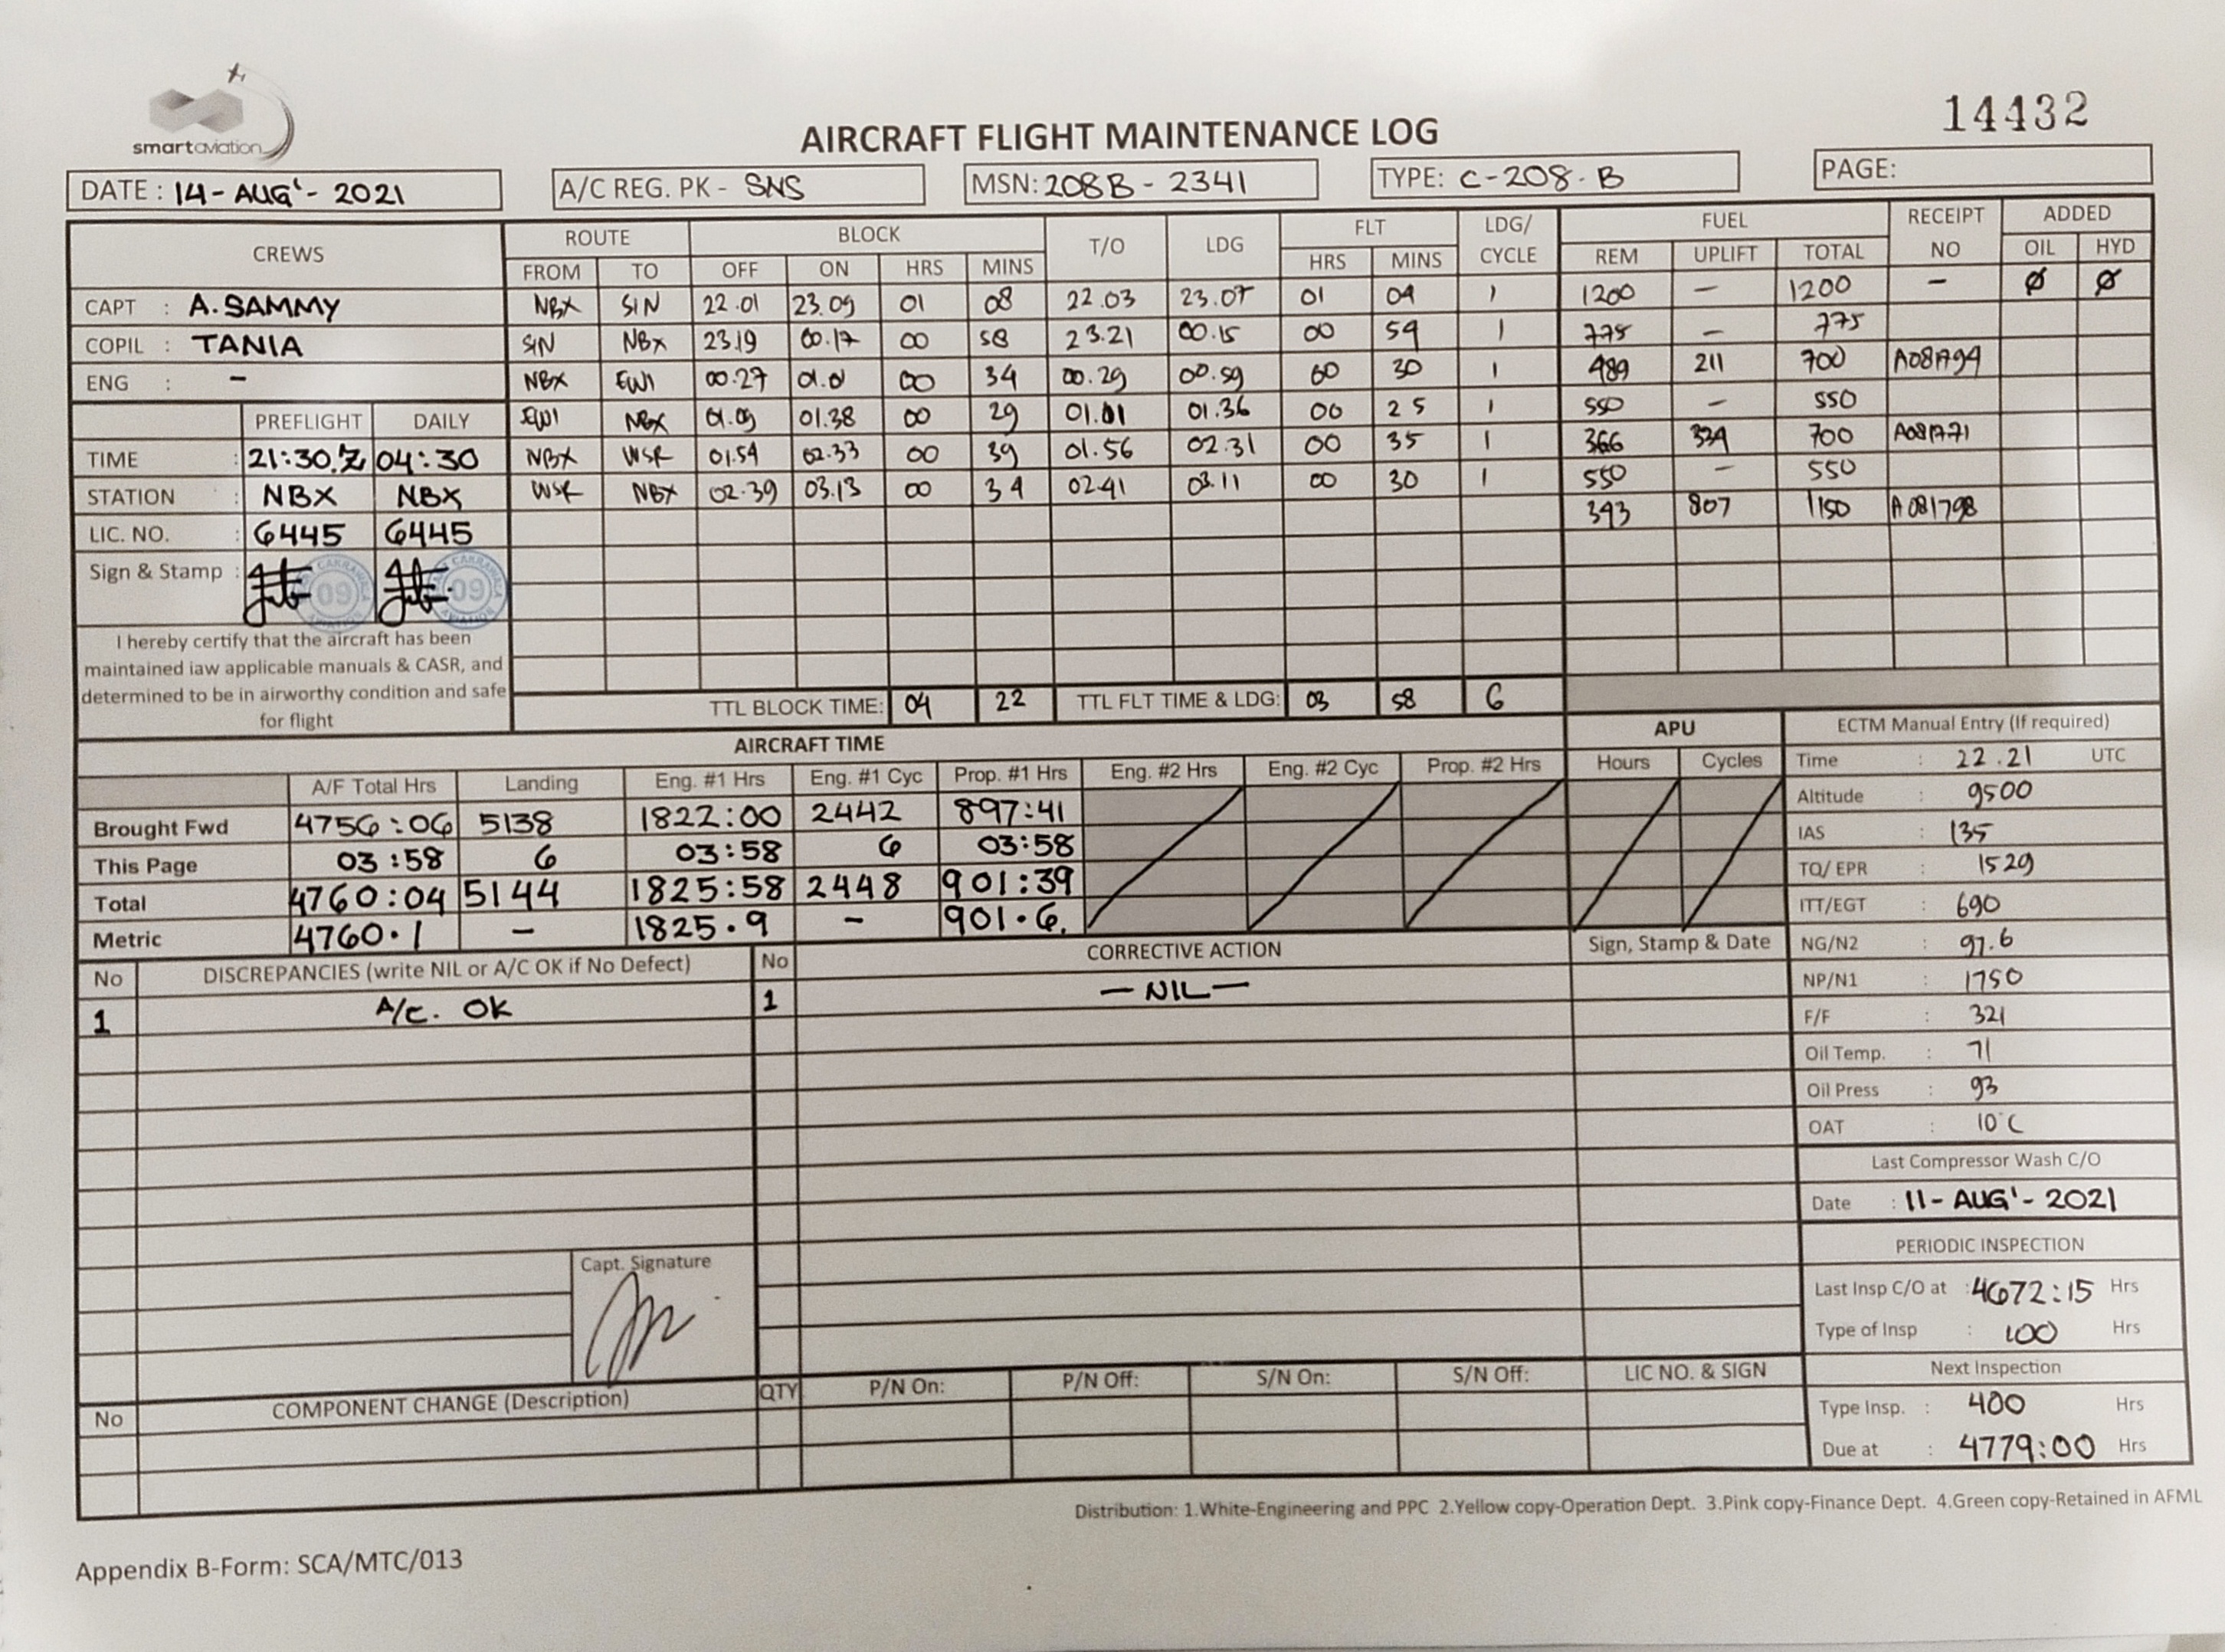 smartaviation
14432
AIRCRAFT FLIGHT MAINTENANCE LOG
DATE : 14-AUG'-2021 A/C REG. PK - SNS MSN: 208B - 2341 TYPE: C-208-B PAGE:
CREWS ROUTE BLOCK T/O LDG FLT LDG/ CYCLE FUEL RECEIPT NO ADDED
FROM TO OFF ON HRS MINS HRS MINS REM UPLIFT TOTAL OIL HYD
CAPT : A. SAMMY NBX SIN 22.01 23.09 01 08 22.03 23.07 01 04 1 1200 - 1200 - Ø Ø
COPIL : TANIA SIN NBX 23.19 00.17 00 58 23.21 00.15 00 54 1 775 - 775
ENG : - NBX EWI 00.27 01.01 00 34 00.29 00.59 00 30 1 489 211 700 A081794
PREFLIGHT DAILY EWI NBX 01.09 01.38 00 29 01.36 00 25 1 550 - 550
TIME : 21:30.Z 04:30 NBX WSR 01.54 02.33 00 39 01.56 02.31 00 35 1 366 334 700
STATION : NBX NBX WSR NBX 02.39 03.13 00 34 02.41 03.11 00 30 1 550 - 550
LIC. NO. : 6445 6445 807 1150 A081798
Sign & Stamp : 09 09
I hereby certify that the aircraft has been
maintained iaw applicable manuals & CASR, and
determined to be in airworthy condition and safe
for flight
TTL BLOCK TIME: 04 22 TTL FLT TIME & LDG: 03 58 6
AIRCRAFT TIME APU
A/F Total Hrs Landing Eng. #1 Hrs Eng. #1 Cyc Prop. #1 Hrs Eng. #2 Hrs Eng. #2 Cyc Prop. #2 Hrs Hours Cycles
Brought Fwd 4756:06 5138 1822:00 2442 897:41
This Page 03:58 6 03:58 6 03:58
Total 4760:04 5144 1825:58 2448 901:39
Metric 4760.1 - 1825.9 - 901.6.
ECTM Manual Entry (If required)
Time : 22.21 UTC
Altitude : 9500
IAS : 135
TQ/ EPR : 1529
ITT/EGT : 690
NG/N2 : 97.6
NP/N1 : 1750
F/F : 321
Oil Temp. : 71
Oil Press : 93
OAT : 10°C
Last Compressor Wash C/O
Date : 11-AUG'-2021
PERIODIC INSPECTION
Last Insp C/O at : 4672:15 Hrs
Type of Insp : 100 Hrs
Next Inspection
Type Insp. : 400 Hrs
Due at : 4779:00 Hrs
No DISCREPANCIES (write NIL or A/C OK if No Defect) No CORRECTIVE ACTION Sign, Stamp & Date
1 A/C. OK 1 — NIL —
Capt. Signature
No COMPONENT CHANGE (Description) QTY P/N On: P/N Off: S/N On: S/N Off: LIC NO. & SIGN
Distribution: 1.White-Engineering and PPC 2.Yellow copy-Operation Dept. 3.Pink copy-Finance Dept. 4.Green copy-Retained in AFML
Appendix B-Form: SCA/MTC/013